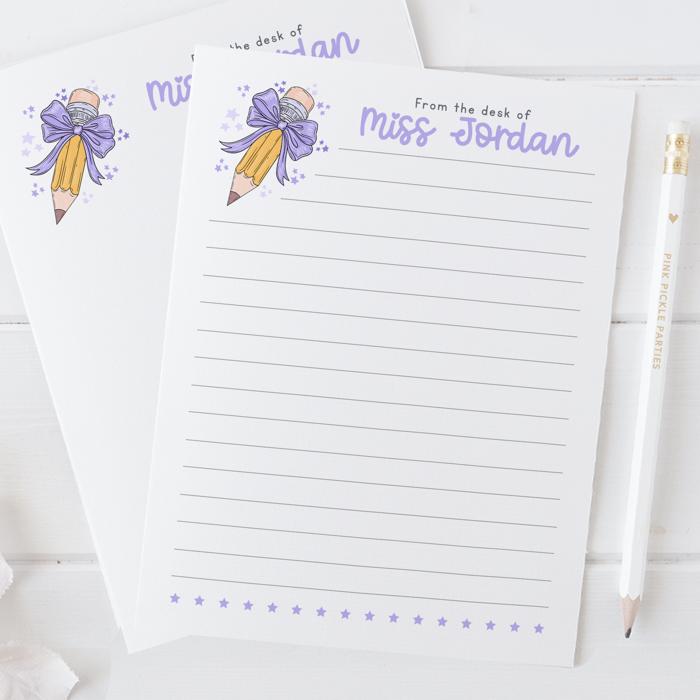 the desk of
From the desk of
Miss Jordan
PINK PICKLE PARTIES